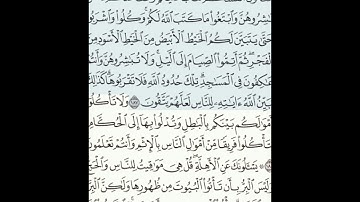 بَٰشِرُوهُنَّ وَٱبْتَغُوا۟ مَا كَتَبَ ٱللَّهُ لَكُمْ وَكُلُوا۟ وَٱشْرَبُوا۟
حَتَّىٰ يَتَبَيَّنَ لَكُمُ ٱلْخَيْطُ ٱلْأَبْيَضُ مِنَ ٱلْخَيْطِ ٱلْأَسْوَدِ مِنَ
ٱلْفَجْرِ ثُمَّ أَتِمُّوا۟ ٱلصِّيَامَ إِلَى ٱلَّيْلِ وَلَا تُبَٰشِرُوهُنَّ وَأَنتُمْ
عَٰكِفُونَ فِى ٱلْمَسَٰجِدِ تِلْكَ حُدُودُ ٱللَّهِ فَلَا تَقْرَبُوهَا كَذَٰلِكَ
يُبَيِّنُ ٱللَّهُ ءَايَٰتِهِۦ لِلنَّاسِ لَعَلَّهُمْ يَتَّقُونَ ١٨٧ وَلَا تَأْكُلُوٓا۟
أَمْوَٰلَكُم بَيْنَكُم بِٱلْبَٰطِلِ وَتُدْلُوا۟ بِهَآ إِلَى ٱلْحُكَّامِ
لِتَأْكُلُوا۟ فَرِيقًا مِّنْ أَمْوَٰلِ ٱلنَّاسِ بِٱلْإِثْمِ وَأَنتُمْ تَعْلَمُونَ
يَسْـَٔلُونَكَ عَنِ ٱلْأَهِلَّةِ قُلْ هِىَ مَوَٰقِيتُ لِلنَّاسِ وَٱلْحَجِّ
وَلَيْسَ ٱلْبِرُّ بِأَن تَأْتُوا۟ ٱلْبُيُوتَ مِن ظُهُورِهَا وَلَٰكِنَّ ٱلْبِرَّ